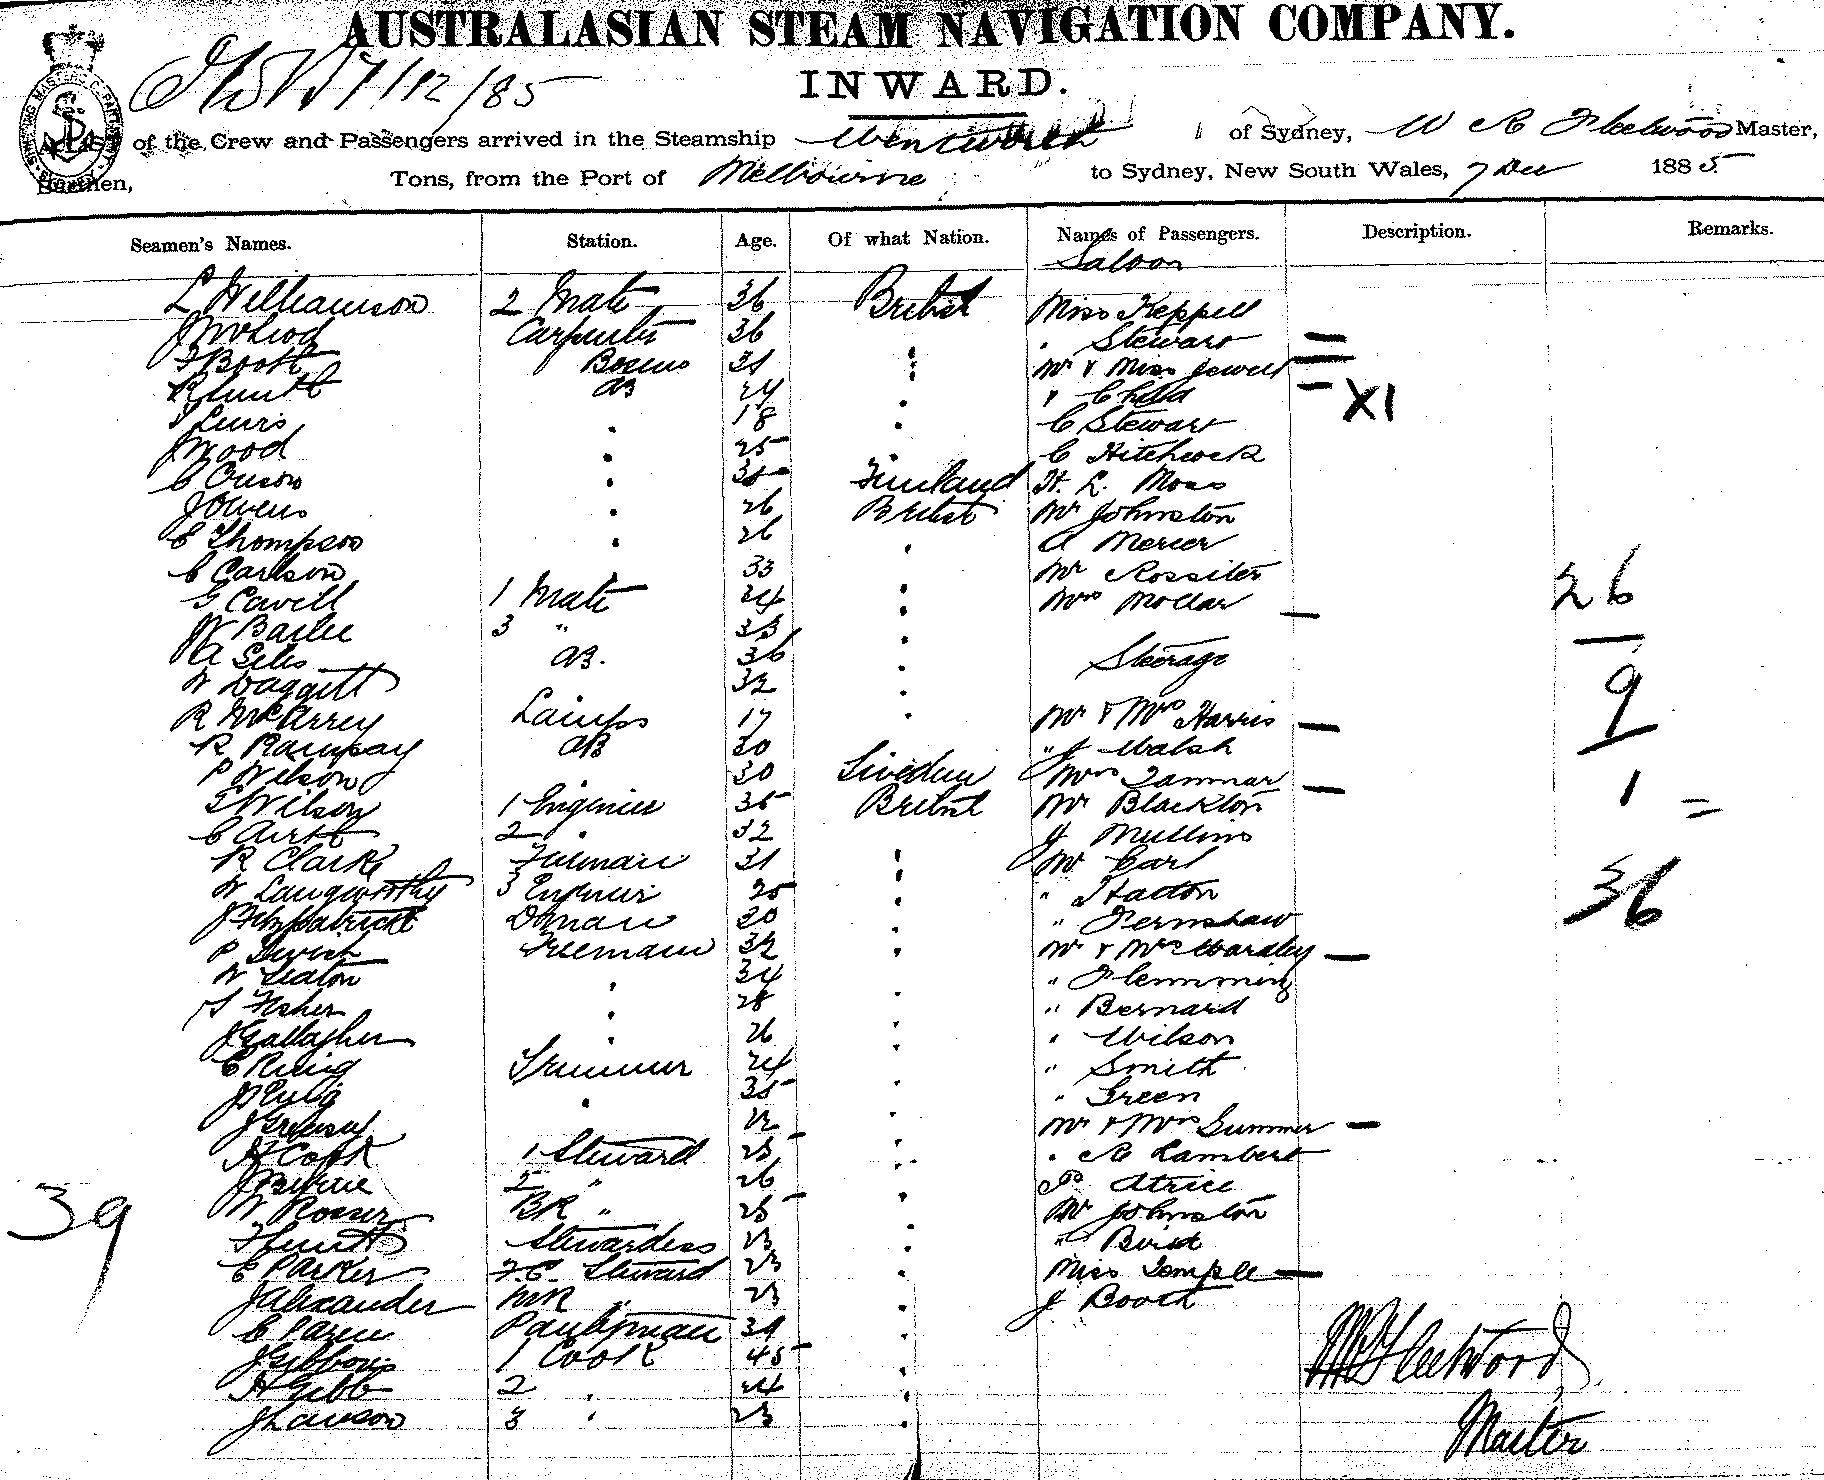 AUSTRALASIAN STEAM NAVIGATION COMPANY.
7/12/85
INWARD.
of the Crew and Passengers arrived in the Steamship Wentworth of Sydney, W A Fleetwood Master,
Burthen, Tons, from the Port of Melbourne to Sydney, New South Wales, 7 Dec 1885
Seamen's Names. Station. Age. Of what Nation. Names of Passengers. Description. Remarks.
Saloon
L Williamson 2 Mate 36 British Miss Keppell
J McLeod Carpenter 36 " Stewart
F Booth Bosuns 31 Mr & Miss Jewell
R Smith AB 24 & Child XI
Lewis 18 C Stewart
J Wood 25 C Hitchcock
C 35 Finland H. L. Moss
J Owens 26 British Mr Johnston
E Thompson 26 A Mercer
C Carlson 33 Mr Rossiter
G Cavell 1 Mate 34 Mrs Mollar 26
W Bailee 3 " 33
A Giles AB. 36 Steerage
W Daggett 32 9
R McArrey Lamps 17 Mr & Mrs Harris
R Ramsay AB 30 " J Walsh
P Nelson 30 Sweden Mrs Tammar
Wilson 1 Engineer 35 British Mr Blackton 1 =
C Airth 2 " 32 J Mullins
R Clarke Fireman 31 Mr Earl
W Langworthy 3 Engineer 25 " Hacton 36
J Fitzpatrick 20 " Fernshaw
P Fireman 32 Mr & Mrs Wardley
W Seaton 34 " Flemming
S Fisher 28 " Bernard
J Gallagher 26 " Wilson
C Trimmer 24 " Smith
J 35 " Green
J Mr & Mrs Summer
H Cook 1 Steward 25 " A Lambert
J Byrne 2 " 26 Atrice
W Rosser BR " 25 Mr Johnston
39
F Smith Stewardess 23 " Bird
E Parker F.C. Steward 23 Miss Temple
J Alexander MR " 23 J Booth
C Pantryman
J Gibbons 1 Cook 45 W A Fleetwood
H Gibb 2 " 24
J Lawson 3 " 23 Master